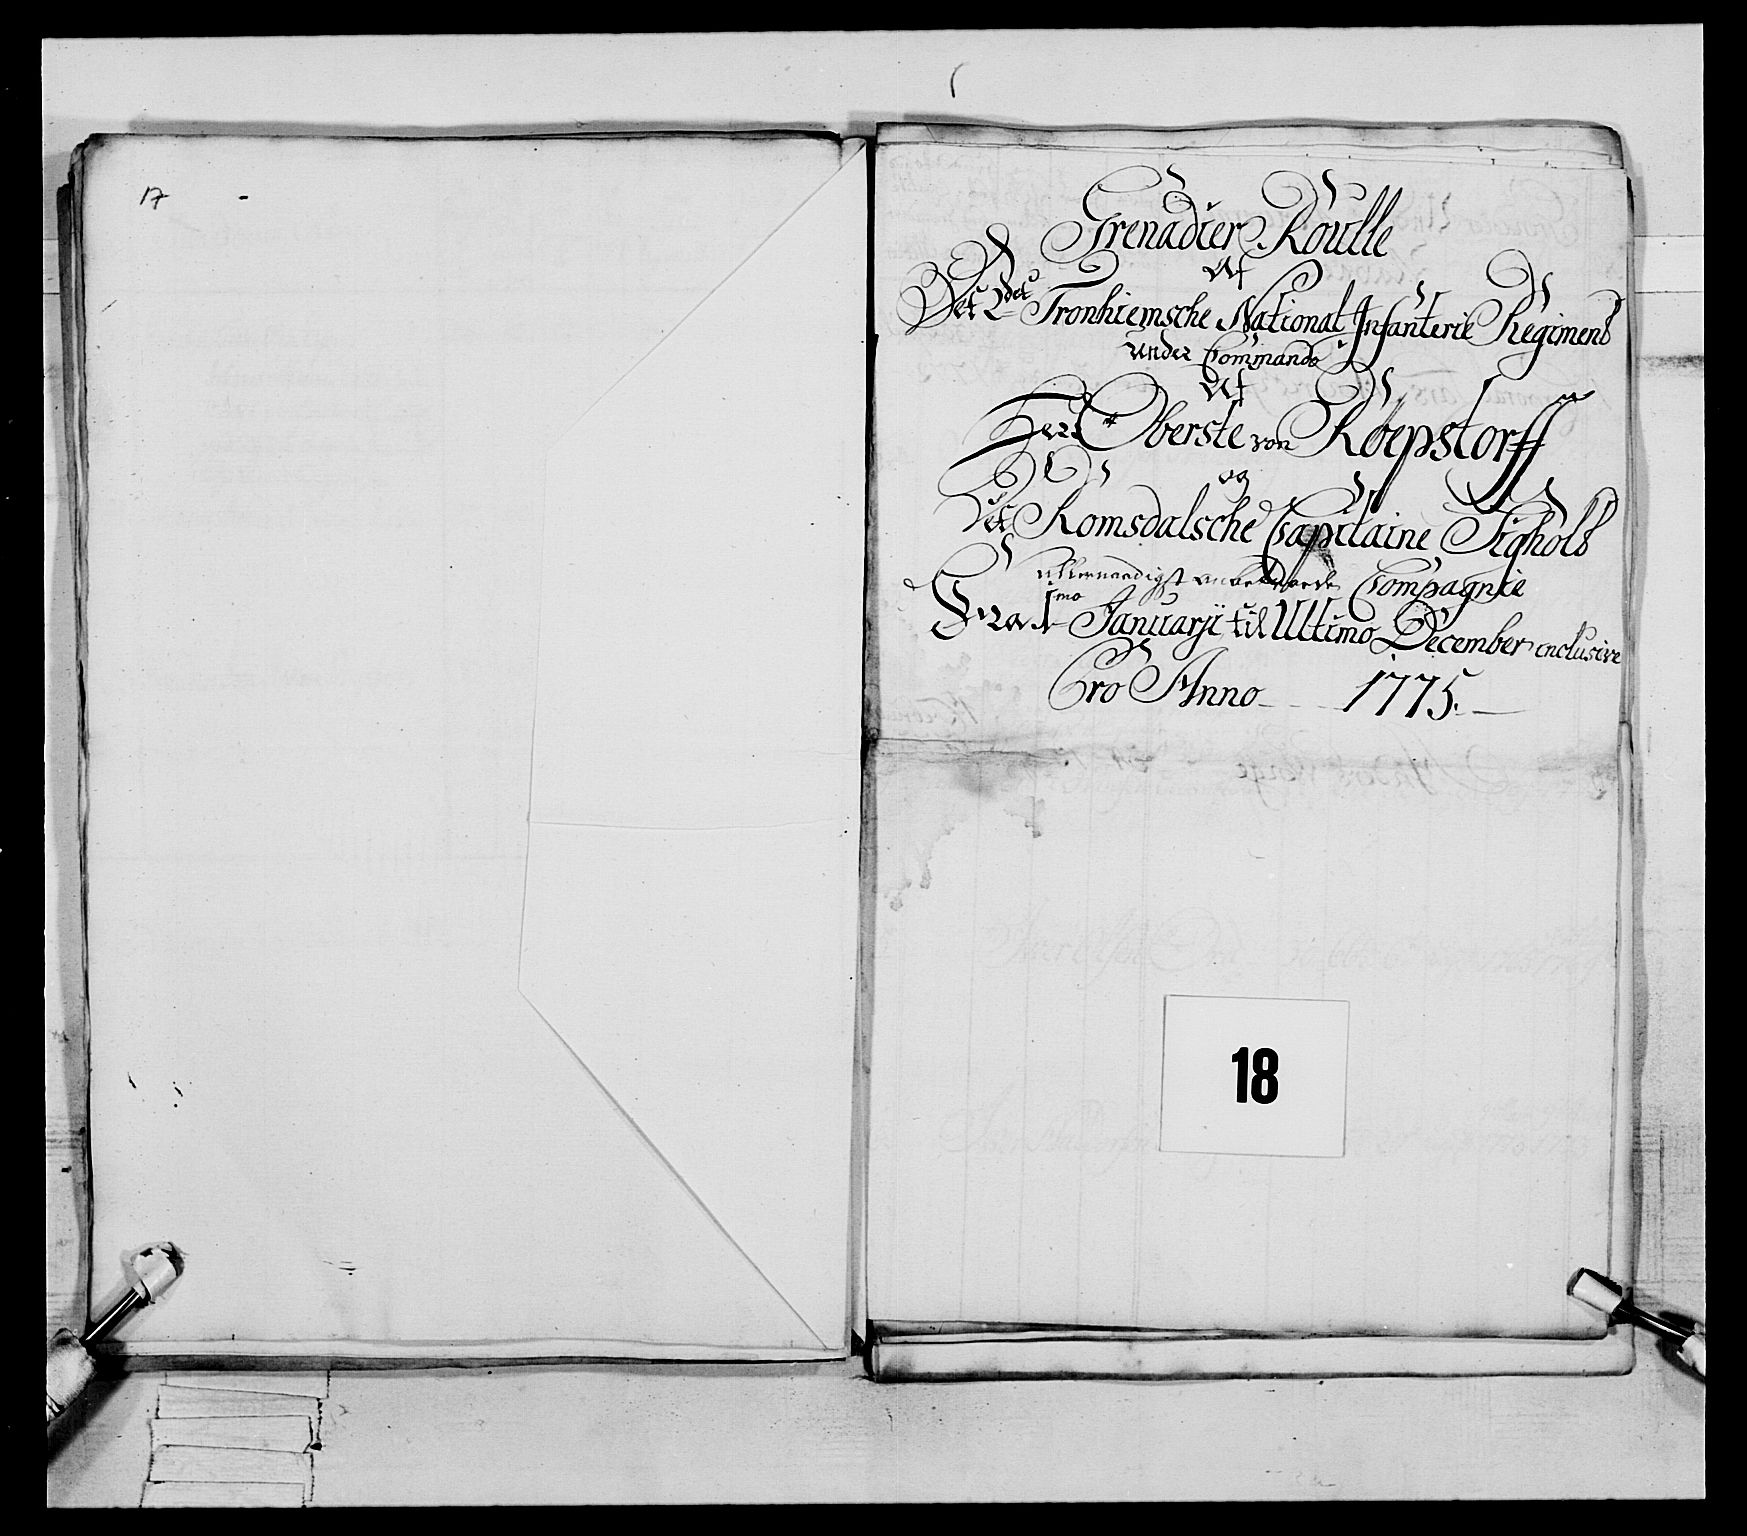 17 -
Grenadier Roulle
Af
Det 2det Tronhiemsche National Infanterie Regiment
under Commando
Af
Herr Oberste von Röepstorff
og
Det Romsdalsche Capitaine Sigholt
allernaadigst anbetroede Compagnie
Fra 1mo Januarji til Ultimo December inclusive
Pro Anno 1775.
18